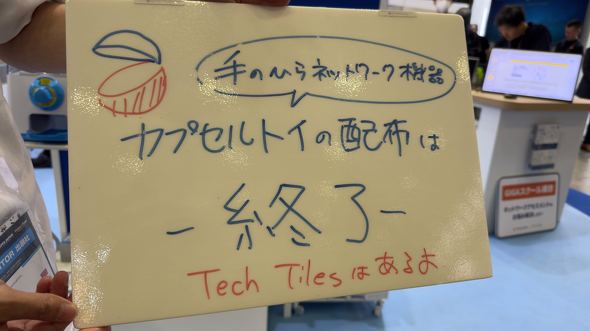 手のひらネットワーク機器
カプセルトイの配布は
-終了-
Tech Tilesはあるよ
GIGAスクール構想